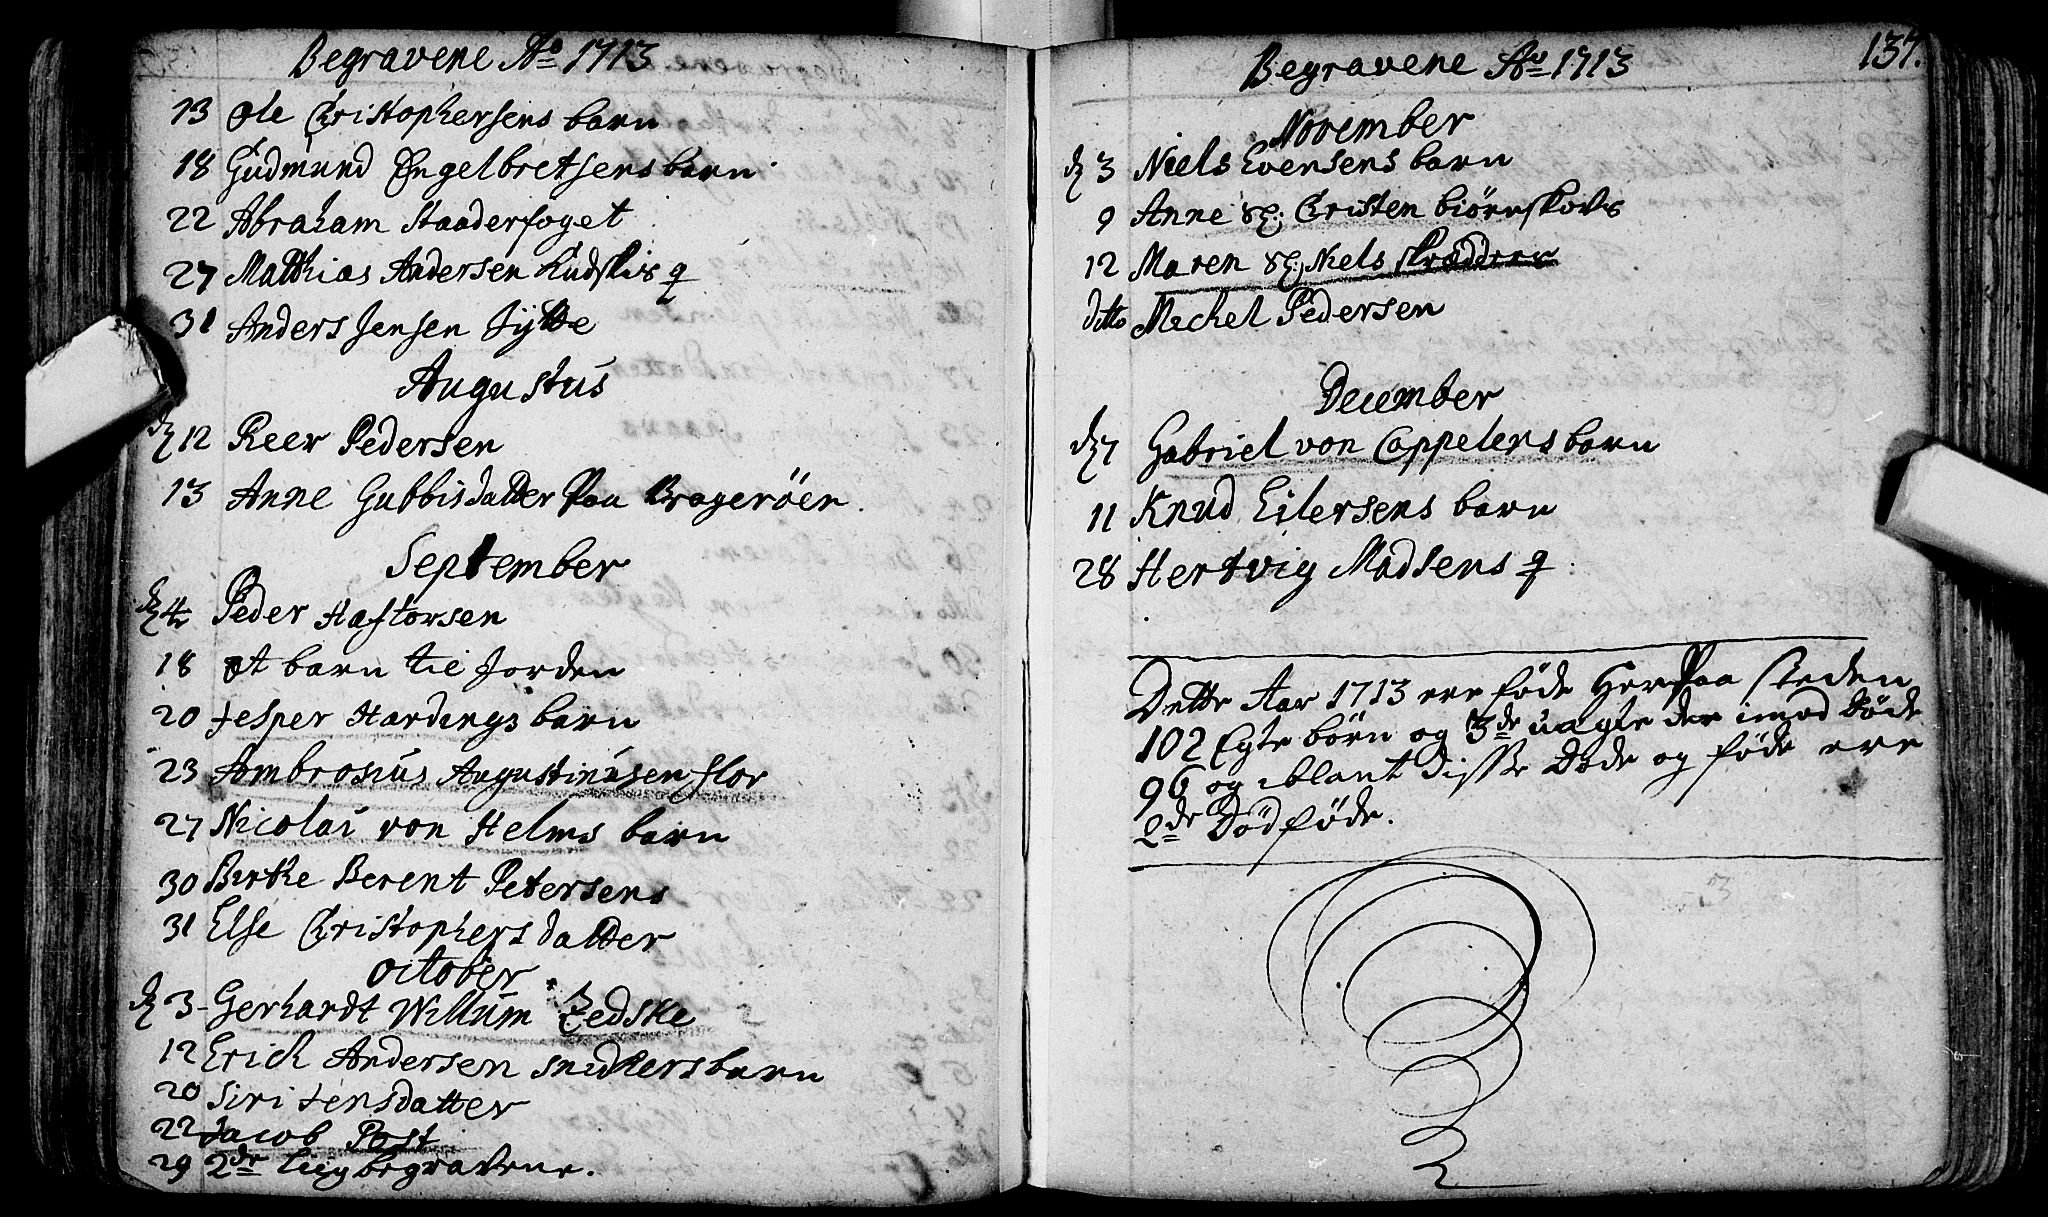 Begravene Ao 1713
13 Ole Christophersens barn
18 Gudmund Engelbretsens barn
22 Abraham Staaderfoget
27 Matthias Andersen Kudskis q
31 Anders Jensen Jÿtte
Augustus
dz 12 Reer Pedersen
13 Anne Gubbisdatter Paa Brageröen.
September
dz 4 Peder Hastorsen
18 et barn til Jorden
20 Jesper Hardings barn
23 Ambrosius Augustinusen flor
27 Nicolai von Helms barn
30 Birke Berent Petersens
31 Else Christophersdatter
October
dz 3 Gerhardt Willum Tedske
12 Erich Andersen snidkers barn
20 Siri Jensdatter
22 Jacob Post
29 2de liig begravene.
137.
Begravene Ao 1713
November
dz 3 Niels Evensens barn
9 Anne Christen biörnskovs
12 Maren Niels skrædders
ditto Michel Pedersen
December
dz 7 Gabriel von Cappelens barn
11 Knud Eilersens barn
28 Hertvig Madsens q
Dette Aar 1713 ere föde Her Paa steden
102 Egte börn og 3de uægte der imod Döde
96 og iblant disse Döde og föde ere
2de Dödföde.
3